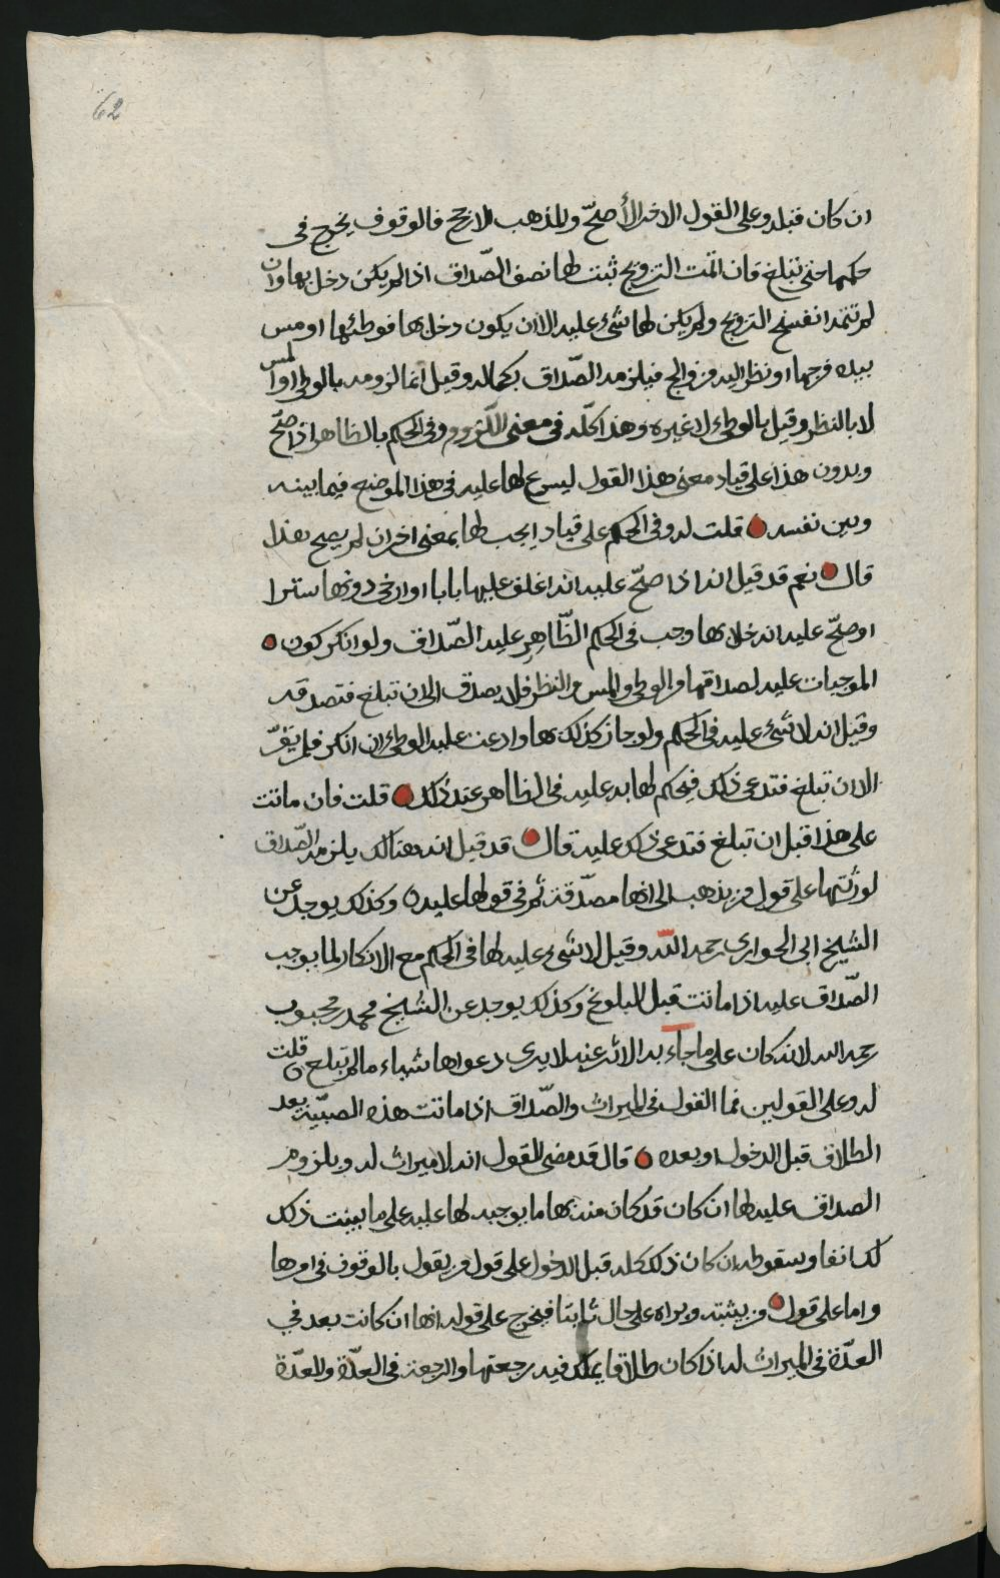 62
ان كان قبله وعلى القول الاخر الأصلحّ والمذهب الارجح فالوقوف يخرج فى
حكمها حتى تبلغ فان اتمت التزويج ثبت لها نصف الصّداق اذا لم يكن دخل بها وان
لم تتمه انفسخ التزويج ولم يكن لها شيء عليه الا ان يكون دخل بها فوطئها او مس
بيده فرجها او نظر اليه من والج فيلزمه الصّداق بكماله وقيل انما لزومه بالوطى او المس
لا بالنظر وقيل بالوطىء لا غيره وهذا كلّه فى معنى اللّزوم وفى الحكم بالظاهر اذا صحّ
وبدون هذا على قياد معنى هذا القول ليس لها عليه فى هذا الموضع فيما بينه
وبين نفسه قلت له وفى الحكم على قياد ايجب لها بمعنى اخر ان لم يصح هذا
قال نعم قد قيل انه اذا صحّ عليه انه اغلق عليها بابا او ارخى دونها سترا
او صحّ عليه انه خلا بها وجب فى الحكم الظّاهر عليه الصّداق ولو انكر كون
الموجبات عليه لصداقها من الوطى والمس والنظر فلا يصدق الى ان تبلغ فتصدقه
وقيل انه لا شىء عليه فى الحكم ولو جاز كذلك بها وادعت عليه الوطىء ان انكر فلم يقرّ
الا ان تبلغ فتدعى ذلك فيحكم لها به عليه فى الظاهر عند ذلك قلت فان ماتت
على هذا قبل ان تبلغ فتدعى ذلك عليه قال قد قيل انه هنالك يلزمه الصّداق
لورثتها على قول من يذهب الى انها مصدّقة ثم فى قولها عليه وكذلك يوجد عن
الشيخ ابى الحوارى رحمه الله وقيل لا شىء عليه لها فى الحكم مع الانكار لما يوجب
الصّداق عليه اذا ماتت قبل البلوغ وكذلك يوجد عن الشيخ محمد بن محبوب
رحمه الله لانه كان على ما جاء به الاثر عنه لا يرى دعواها شيئا ما لم تبلغ قلت
له وعلى القولين فما القول فى الميراث والصّداق اذا ماتت هذه الصبيّة بعد
الطلاق قبل الدخول او بعده قال قد مضى القول انه لا ميراث له وبلزوم
الصداق عليه لها ان كان قد كان منه بها ما يوجبه لها عليه على ما بينت ذلك
لك انفا وسقوطه ان كان ذلك كله قبل الدخول على قول من يقول بالوقوف فى امرها
واما على قول من يثبته ويراه على حال ثابتا فيخرج على قوله انها ان كانت بعد في
العدّة فى الميراث له اذا كان طلاقا يملك فيه رجعتها والرجعة فى العدّة والعدّة